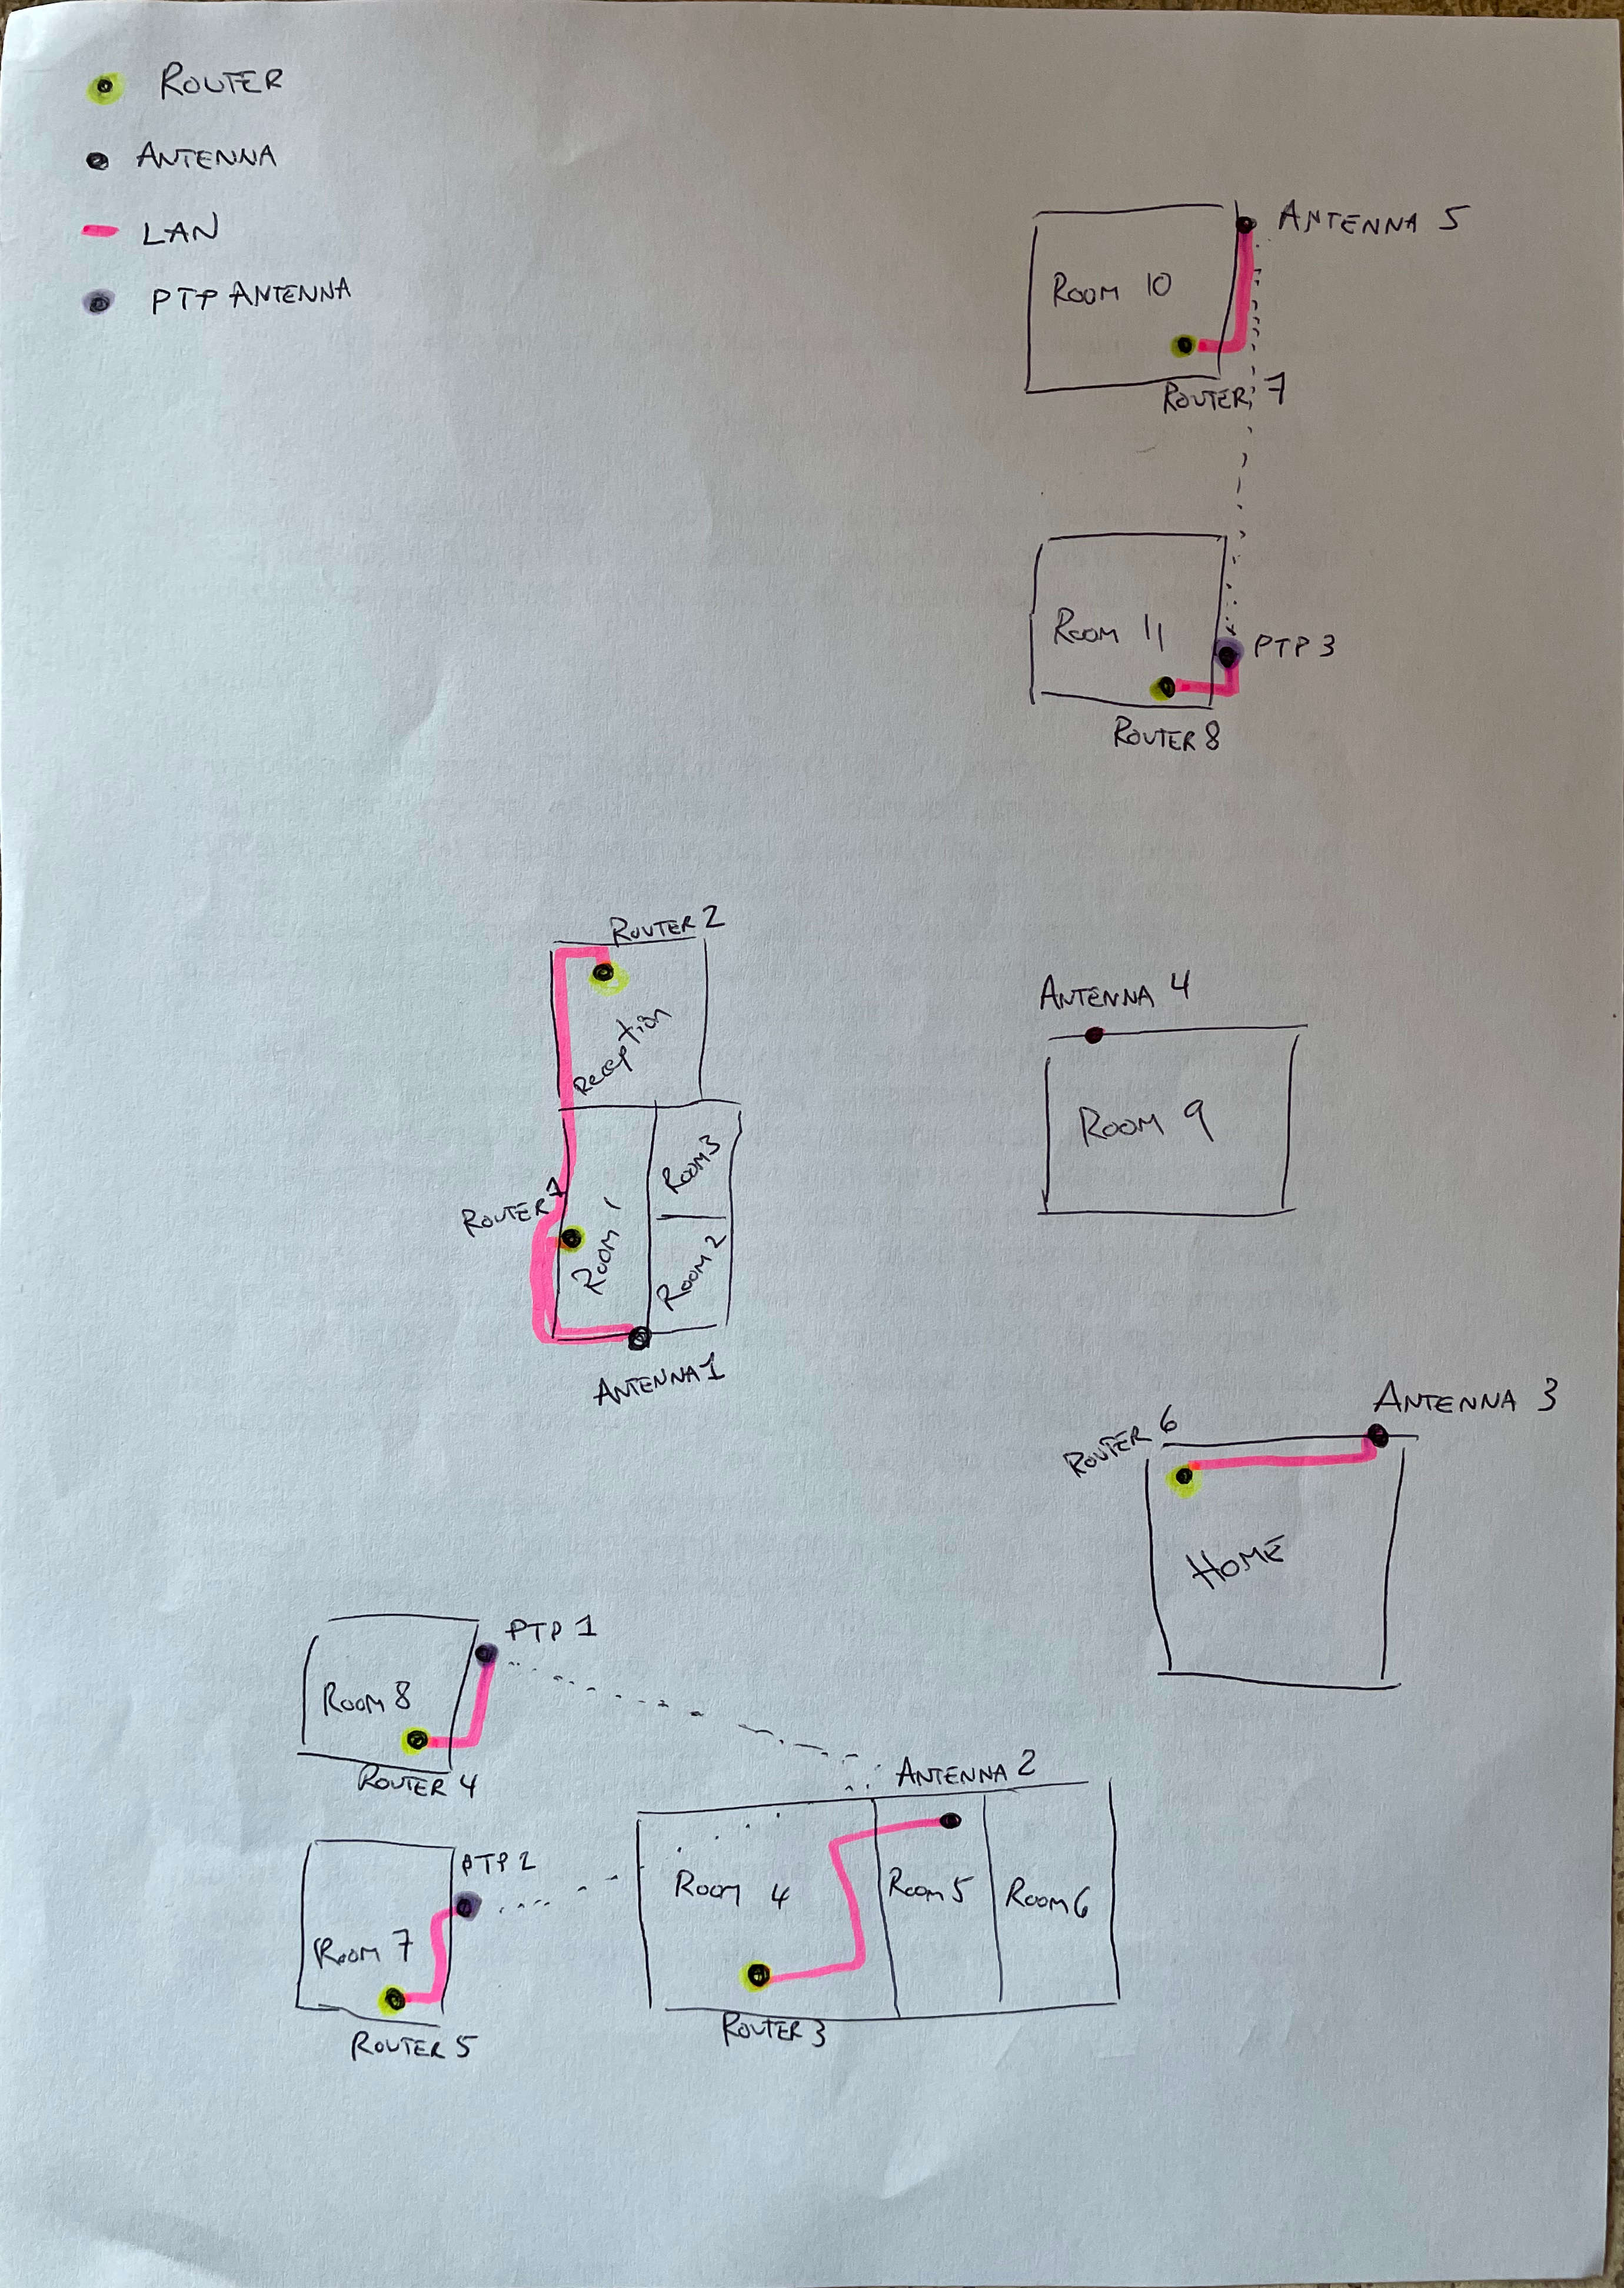 ROUTER
ANTENNA
LAN
PTP ANTENNA
ANTENNA 5
ROOM 10
ROUTER 7
ROOM 11
PTP 3
ROUTER 8
ROUTER 2
Reception
ANTENNA 4
ROOM 9
ROOM 3
ROUTER 1
ROOM 1
ROOM 2
ANTENNA 1
ANTENNA 3
ROUTER 6
HOME
PTP 1
ROOM 8
ROUTER 4
ANTENNA 2
PTP 2
ROOM 4
ROOM 5
ROOM 6
ROOM 7
ROUTER 3
ROUTER 5